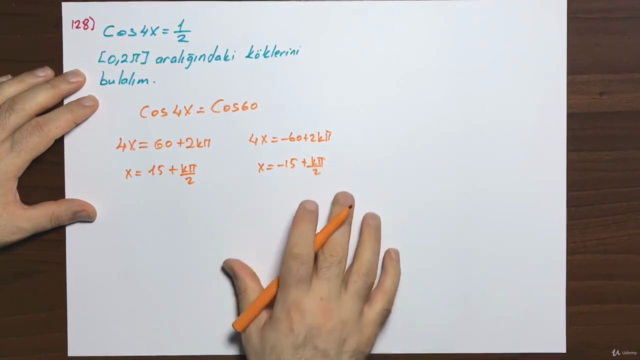 128) Cos4x = 1/2
[0,2π] aralığındaki köklerini
bulalım.
Cos4x = Cos60
4x = 60+2kπ
x = 15 + kπ/2
4x = -60+2kπ
x = -15 + kπ/2
Udemy